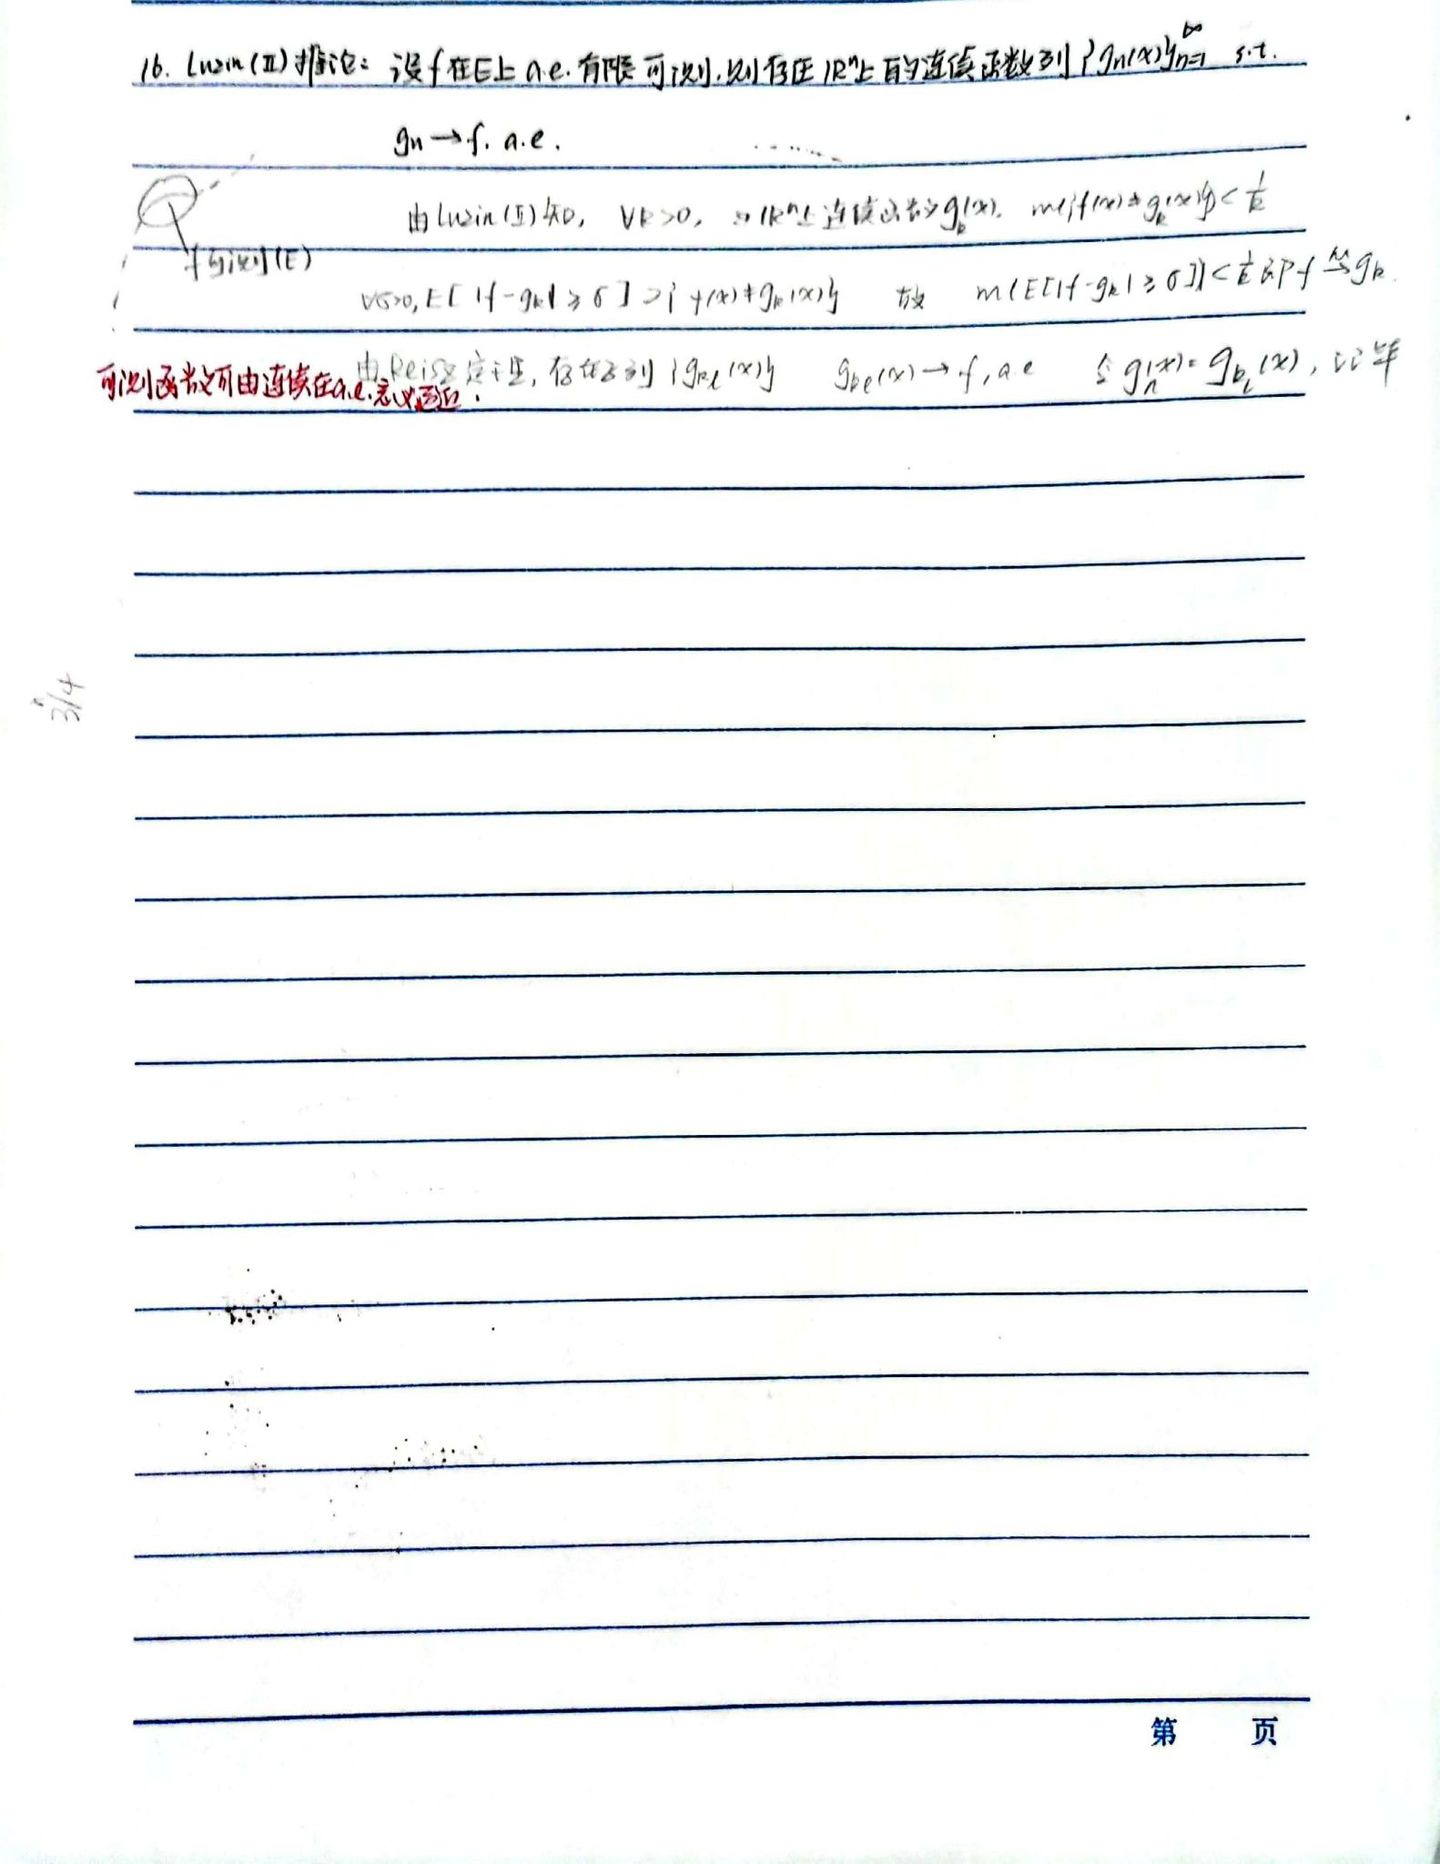 16. Luzin(Ⅱ)推论: 设f在E上a.e.有限可测,则存在ℝⁿ上的连续函数列{gₙ(x)}ₙ₌₁^∞ s.t.
gₙ→f. a.e.
由Luzin(Ⅱ)知, ∀k>0, ∃ℝⁿ上连续函数gₖ(x), m{f(x)≠gₖ(x)}<1/k
f可测(E)
∀σ>0, E[|f-gₖ|≥σ]⊃{f(x)≠gₖ(x)} 故 m(E[|f-gₖ|≥σ])<1/k 即f⇒gₖ.
由Reisz定理, 存在子列{gₖₗ(x)} gₖₗ(x)→f, a.e 令gₙ(x)=gₖₗ(x), 证毕
可测函数可由连续在a.e.意义逼近.
3/4
第 页